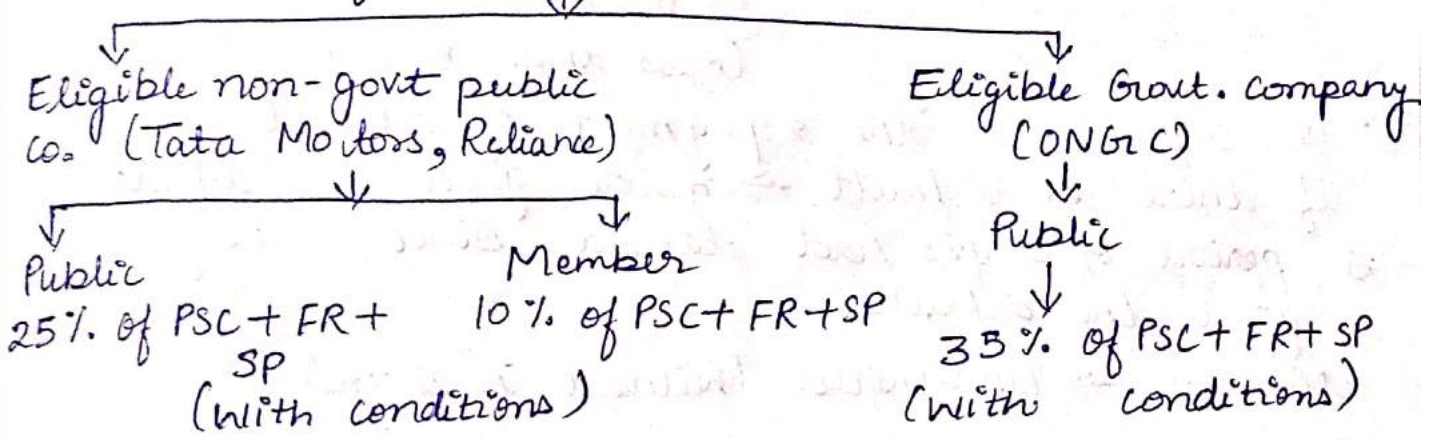 Eligible non-govt public
co. (Tata Motors, Reliance)
Public
25% of PSC + FR +
SP
(with conditions)
Member
10% of PSC + FR + SP
Eligible Govt. company
(ONGC)
Public
35% of PSC + FR + SP
(with conditions)